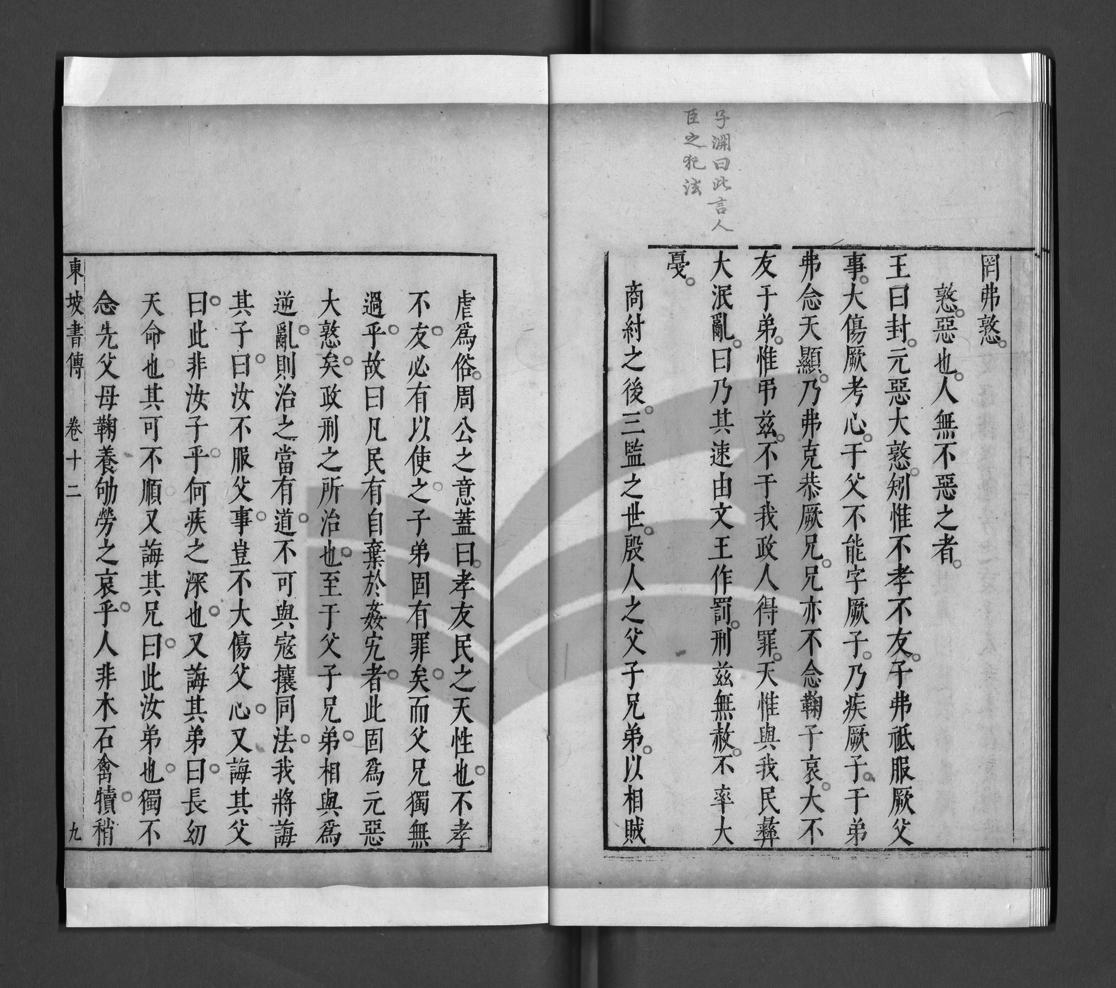 子淵曰此言人
臣之犯法
罔弗憝
憝惡也人無不惡之者
王曰封元惡大憝矧惟不孝不友子弗祗服厥父
事大傷厥考心于父不能字厥子乃疾厥子于弟
弗念天顯乃弗克恭厥兄兄亦不念鞠子哀大不
友于弟惟弔茲不于我政人得罪天惟與我民彝
大泯亂曰乃其速由文王作罰刑茲無赦不率大
戞
商紂之後三監之世殷人之父子兄弟以相賊
虐爲俗周公之意蓋曰孝友民之天性也不孝
不友必有以使之子弟固有罪矣而父兄獨無
過乎故曰凡民有自棄於姦宄者此固爲元惡
大憝矣政刑之所治也至于父子兄弟相與爲
逆亂則治之當有道不可與寇攘同法我將誨
其子曰汝不服父事豈不大傷父心又誨其父
曰此非汝子乎何疾之深也又誨其弟曰長幼
天命也其可不順又誨其兄曰此汝弟也獨不
念先父母鞠養劬勞之哀乎人非木石禽犢稍
東坡書傳 卷十二 九